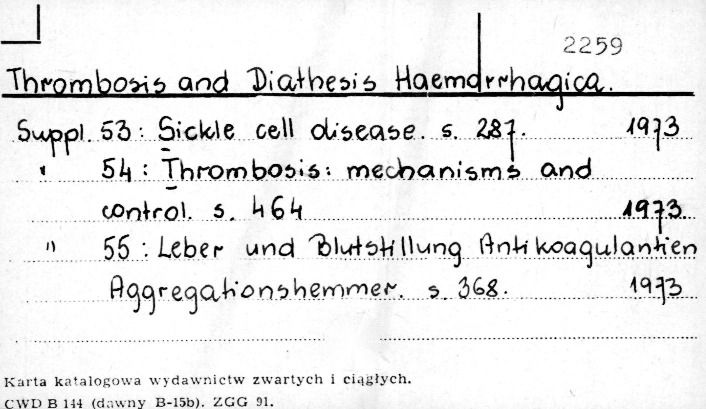 2259
Thrombosis and Diathesis Haemorrhagica.
Suppl. 53: Sickle cell disease. s. 287. 1973
" 54: Thrombosis: mechanisms and
control. s. 464 1973
" 55: Leber und Blutstillung Antikoagulantien
Aggregationshemmer. s. 368. 1973
Karta katalogowa wydawnictw zwartych i ciągłych.
CWD B 144 (dawny B-15b). ZGG 91.